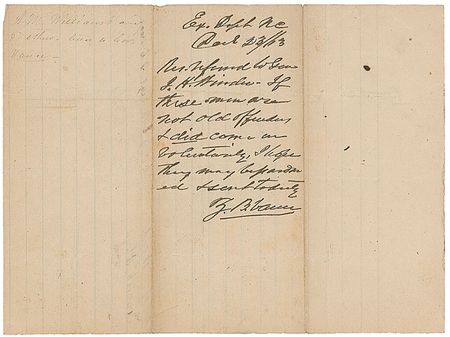 J. M. Williams & and
others
Ex. Dept N.C
Dec 23/63
Res. referred to Gen
J. H. Winder - If
these men are
not old offenders
& did come in
voluntarily, I hope
they may be pardon
ed & sent to duty
Z. B. Vance